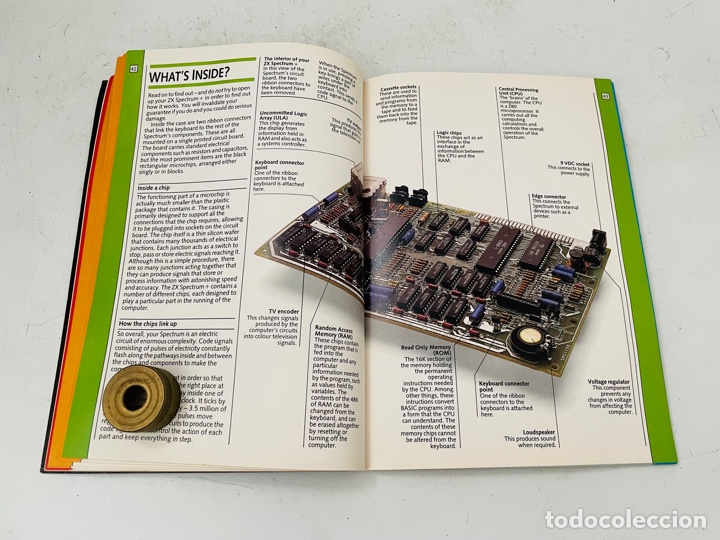 42
WHAT'S INSIDE?
Read on to find out – and do not try to open
up your ZX Spectrum + in order to find out
how it works. You will invalidate your
guarantee if you do and you could do serious
damage.
Inside the case are two ribbon connectors
that link the keyboard to the rest of the
Spectrum's components. These are all
mounted on a single printed circuit board.
The board carries standard electrical
components such as resistors and capacitors,
but the most prominent items are the black
rectangular microchips, arranged either
singly or in blocks.
Inside a chip
The functioning part of a microchip is
actually much smaller than the plastic
package that contains it. The casing is
primarily designed to support all the
connections that the chip requires, allowing
it to be plugged into sockets on the circuit
board. The chip itself is a thin silicon wafer
that contains many thousands of electrical
junctions. Each junction acts as a switch to
stop, pass or store electric signals reaching it.
Although this is a simple procedure, there
are so many junctions acting together that
they can produce signals that store or
process information with astonishing speed
and accuracy. The ZX Spectrum + contains a
number of different chips, each designed to
play a particular part in the running of the
computer.
How the chips link up
So overall, your Spectrum is an electric
circuit of enormous complexity. Code signals
consisting of pulses of electricity constantly
flash along the pathways inside and between
the chips and components to make the
in order so that
right place at
inside one of
clock. It ticks by
– 3.5 million of
pulses move
circuits to produce the
code control the action of each
part and keep everything in step.
The interior of your
ZX Spectrum +
In this view of the
Spectrum's circuit
board, the two
ribbon connectors to
the keyboard have
been removed.
Uncommitted Logic
Array (ULA)
This chip generates
the display from
information held in
RAM and also acts as
a systems controller.
Keyboard connector
point
One of the ribbon
connectors to the
keyboard is attached
here.
When the
is in use,
key brings
wires under
contact. This
code signal to
CPU.
TV
signal that
the
TV encoder
This changes signals
produced by the
computer's circuits
into colour television
signals.
Random Access
Memory (RAM)
These chips contain
the program that is
fed into the
computer and any
particular
information needed
by the program, such
as values held by
variables. The
contents of the 48K
of RAM can be
changed from the
keyboard, and can
be erased altogether
by resetting or
turning off the
computer.
43
Cassette sockets
These are used to
send information
and programs from
the memory to a
tape and to feed
them back into the
memory from the
tape.
Logic chips
These chips act as an
interface in the
exchange of
information between
the CPU and the
RAM.
Central Processing
Unit (CPU)
The 'brains' of the
computer. The CPU
is a Z80
microprocessor. It
carries out all the
computing
calculations and
controls the overall
operation of the
Spectrum.
9 VDC socket
This connects to the
power supply.
Edge connector
This connects the
Spectrum to external
devices such as a
printer.
Read Only Memory
(ROM)
The 16K section of
the memory holding
the permanent
operating
instructions needed
by the CPU. Among
other things, these
instructions convert
BASIC programs into
a form that the CPU
can understand. The
contents of these
memory chips cannot
be altered from the
keyboard.
Keyboard connector
point
One of the ribbon
connectors to the
keyboard is attached
here.
Loudspeaker
This produces sound
when required.
Voltage regulator
This component
prevents any
changes in voltage
from affecting the
computer.
todocoleccion.net